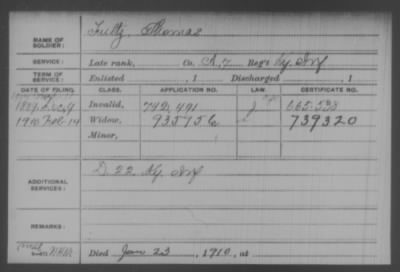 NAME OF SOLDIER: Fultz, Thomas
SERVICE: Late rank, Co. A, 7 Reg't Ky. Inf
TERM OF SERVICE: Enlisted , 1 Discharged , 1
DATE OF FILING. CLASS. APPLICATION NO. LAW. CERTIFICATE NO.
1889 Dec 9 Invalid, 742,491 665.538
1910 Feb 14 Widow, 935756 739320
Minor,
ADDITIONAL SERVICES: D. 22 Ky. Inf
REMARKS:
Died Jan 23, 1910, at